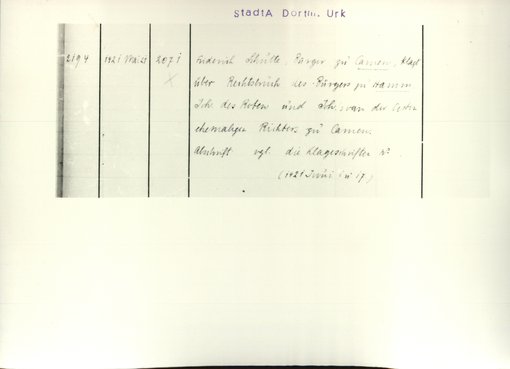 StadtA Dortm. Urk
2194 1421 Mai 21 2071 Friderich Schulte, Bürger zu Camen, klagt
über Rechtsbruch des Bürgers zu Hamm
Joh. des Roden und Joh. van der
ehemaligen Richters zu Camen.
Abschrift vgl. die Klageschriften
(1421 Juni 1 u 17)